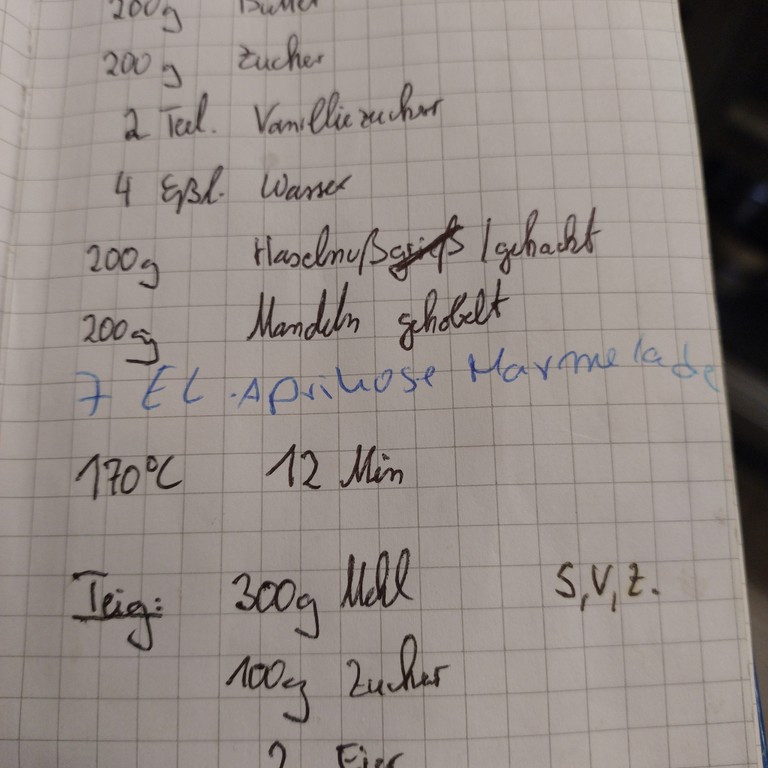 200g Butter
200g Zucker
2 Teel. Vanilliezucker
4 Eßl. Wasser
200g Haselnußgrieß /gehackt
200g Mandeln gehobelt
7 EL. Aprikose Marmelade
170°C 12 Min
Teig: 300g Mehl S,V,Z.
100g Zucker
2 Eier